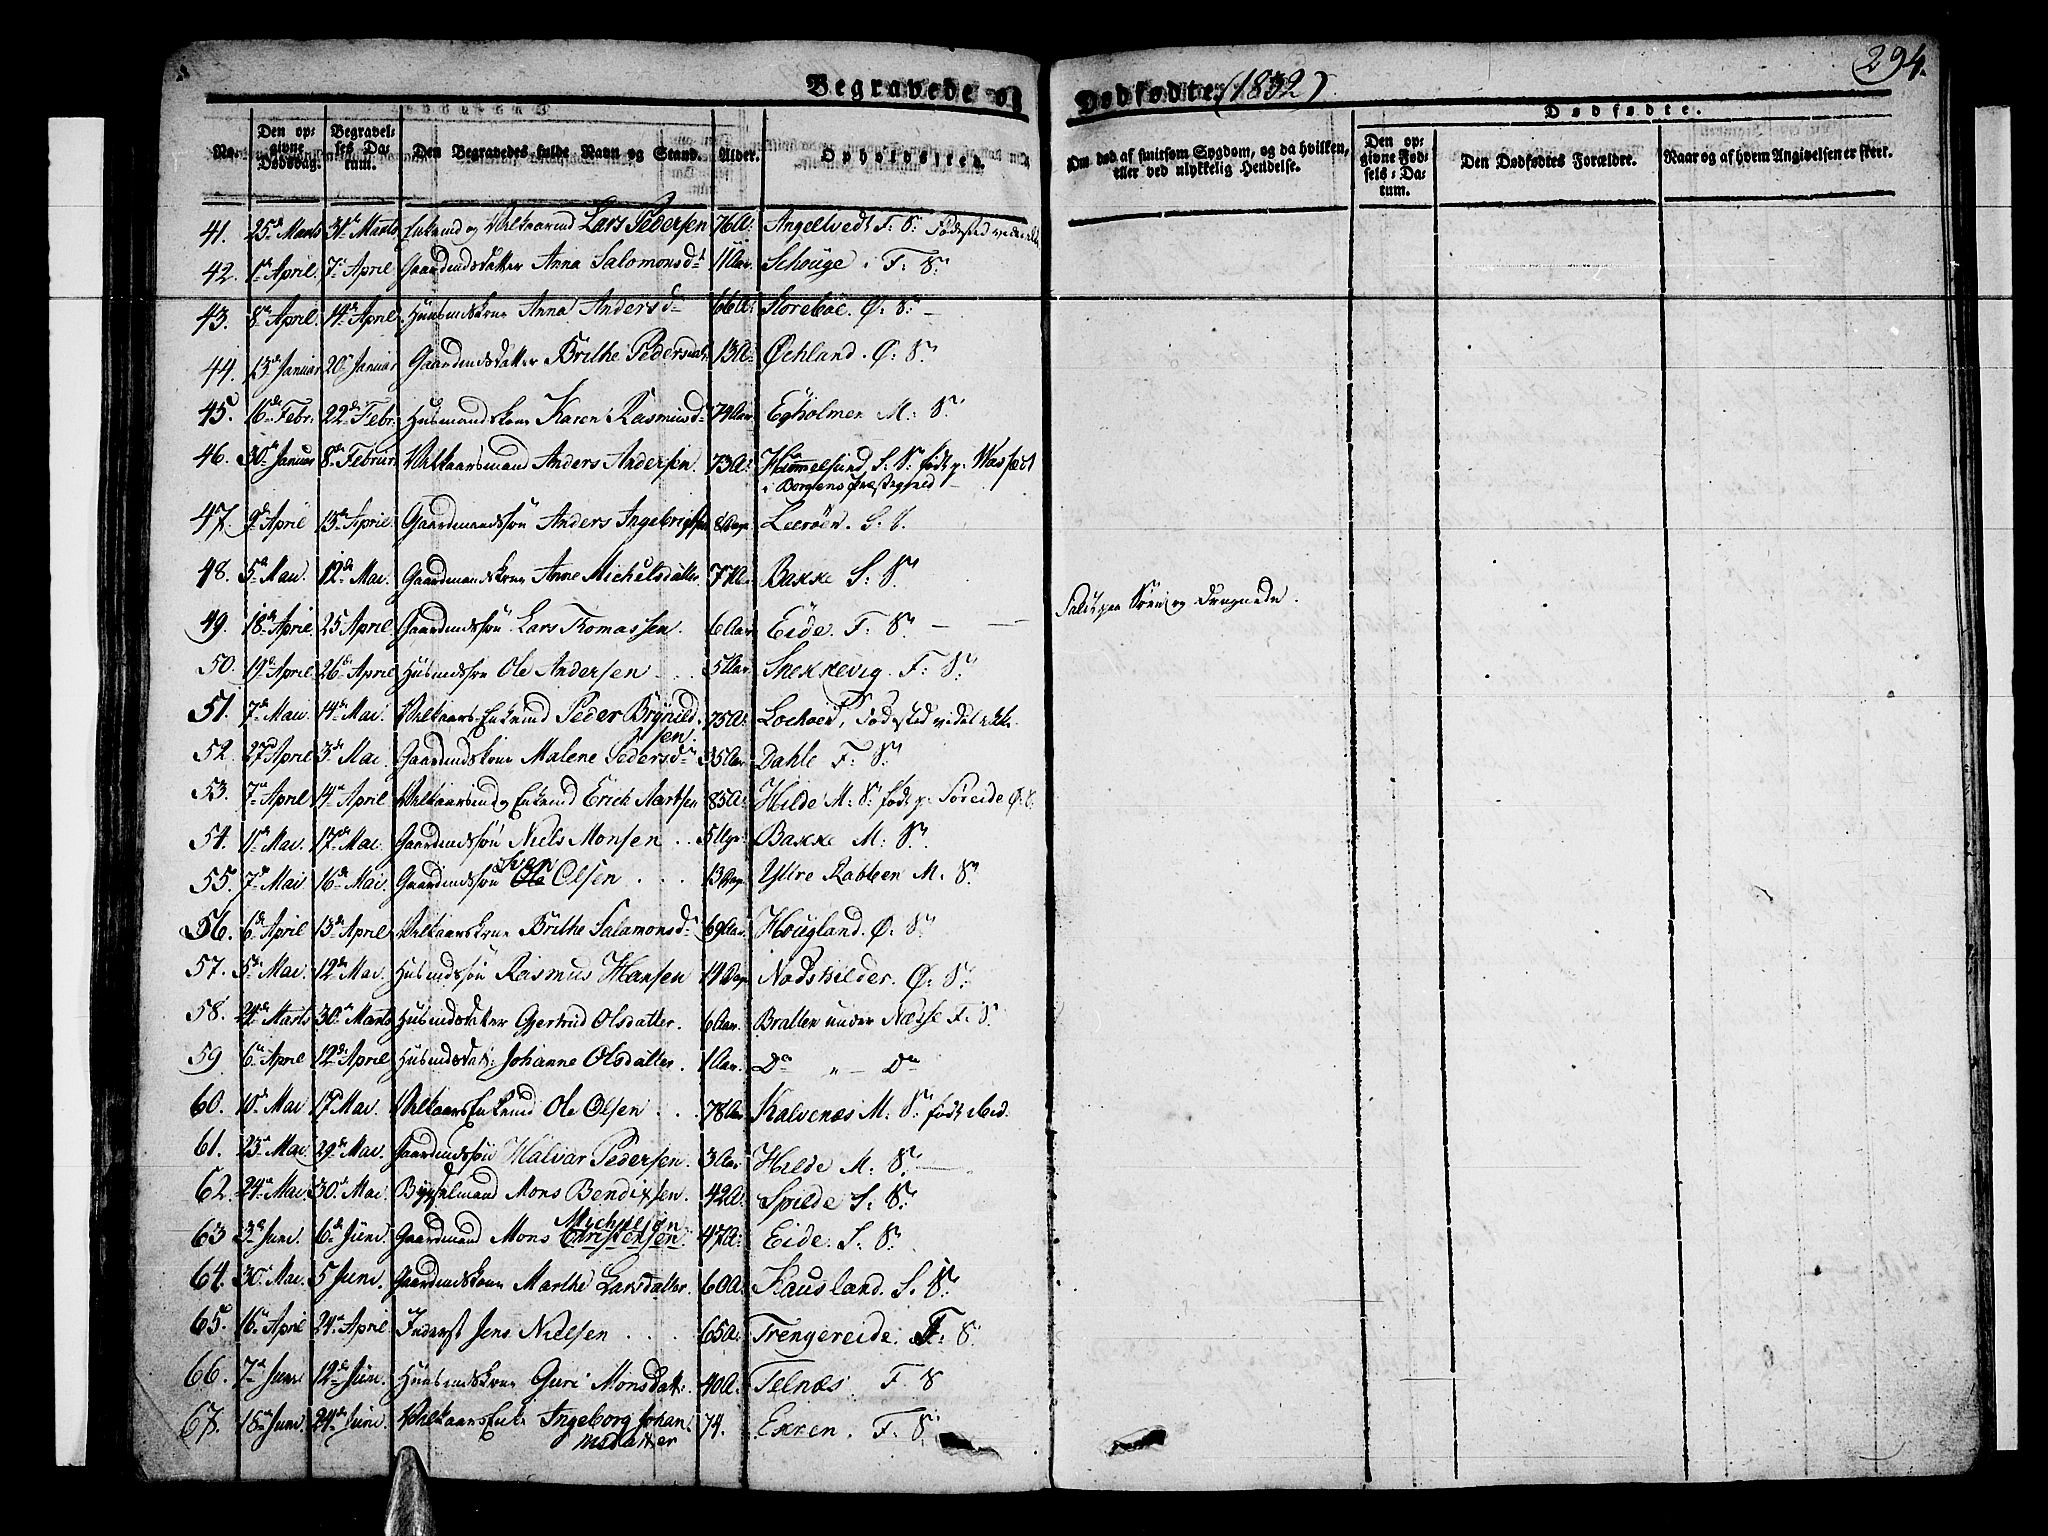 294.
Begravede og Dødfødte (1832)
Dødfødte.
No. Den opgivne Dødsdag. Begravelses Datum. Den Begravedes fulde Navn og Stand. Alder. Opholdssted. Om død af smitsom Sygdom, og da hvilken, eller ved ulykkelig Hendelse. Den opgivne Fødsels-Datum. Den Dødfødtes Forældre. Naar og af hvem Angivelsen er skeet.
41. 25de Marts 31te Marts Enkemd og Vilkaarmd Lars Pedersen 76 A: Angeltvedt F: S:
42. 1te April. 7de April Gaardmdsdatter Anna Salomonsdr 11 Aar Schouge i F: S:
43. 8de April. 14de April Huusmdskone Anna Andersdr 66 A: Storebøe. Ø: S:
44. 13de Januar 20de Januar Gaardmdsdatter Brithe Pedersdatr 13 A: Øchland. Ø: S:
45. 16de Febr: 22de Febr: Husmandskone Karen Rasmusdr 74 Aar Egholmen M: S:
46. 30te Januar 8de Februar Vilkaarsmand Anders Andersen. 73 A: Himmelsund S: S: født p:
i Borgens Præstegield
47. 9de April 13de April. Gaardmandssøn Anders Ingebrigtsen 8 Dage Leerøen. S: S.
48. 5te Mai. 12te Mai. Gaardmandskone Anne Michelsdatter. 77 A: Bakke S: S:
49. 18de April. 25 April. Gaardmdssøn Lars Thomassen. 6 Aar Eide. F: S: Faldt paa Søen og druknede.
50. 19de April. 26de April Husmdssøn Ole Andersen 5 Aar Snekkevig. F: S:
51. 7de Mai 14de Mai. Vilkaars-Enkemd Peder Brynild
sen. 75 A: Fødested vides ikke.
52. 27de April 3de Mai Gaardmdskone Malene Pedersdr 35 Aar Dahle F: S:
53. 7de April 14de April Vilkaarsmd og Enkemd Erick Aartsen 85 A: Hilde M: S: født p: Søreide Ø: S:
54. 11te Mai. 17de Mai. Gaardmdssøn Niels Monsen 5 Ugr: Bakke M: S:
55. 7de Mai 16de Mai. Gaardmdssøn Sven Ole Olsen 13 Dage Yttre Rabben M. S:
56. 6te April 13de April Vilkaarskone Brithe Salamonsdr 69 Aar. Hougland. Ø. S:
57. 5te Mai 12te Mai. Husmdssøn Rasmus Hansen 14 Dage Nodskilder. Ø: S:
58. 24de Marts 30te Marts Husmdsdatter Gjertrud Olsdatter. 6 Aar. Bratten under Nesse F: S:
59. 6te April 12te April Husmdsdat: Johanne Olsdatter. 1 Aar. Do „ — Do
60. 10de Mai 17de Mai. Vilkaars Enkemd Ole Olsen 78 Aar Kalvenæs M: S: født ibid.
61. 23de Mai. 29de Mai. Gaardmdssøn Halvar Pedersen. 3 Aar Hilde M: S:
62. 24de Mai. 30te Mai Bygselmand Mons Bendixsen. 42 A: Spilde S: S:
63 3de Juni. 6te Juni Gaardmand Mons Michelsen Christensen. 47 A: Eide. S: S:
64. 30te Mai. 5 Juni. Gaardmdskone Marthe Larsdatter. 60 A: Hausland. S: S:
65. 16de April 24de April Inderst Jens Nielsen 65 A: Trengereide. F: S:
66. 7de Juni 12te Juni. Huusmdskone Guri Monsdatr: 40 A: Telnæs. F. S
67. 18de Juni. 24de Juni Vilkaarsenke Ingeborg Johan
nesdatter 74. Ekren. F. S: